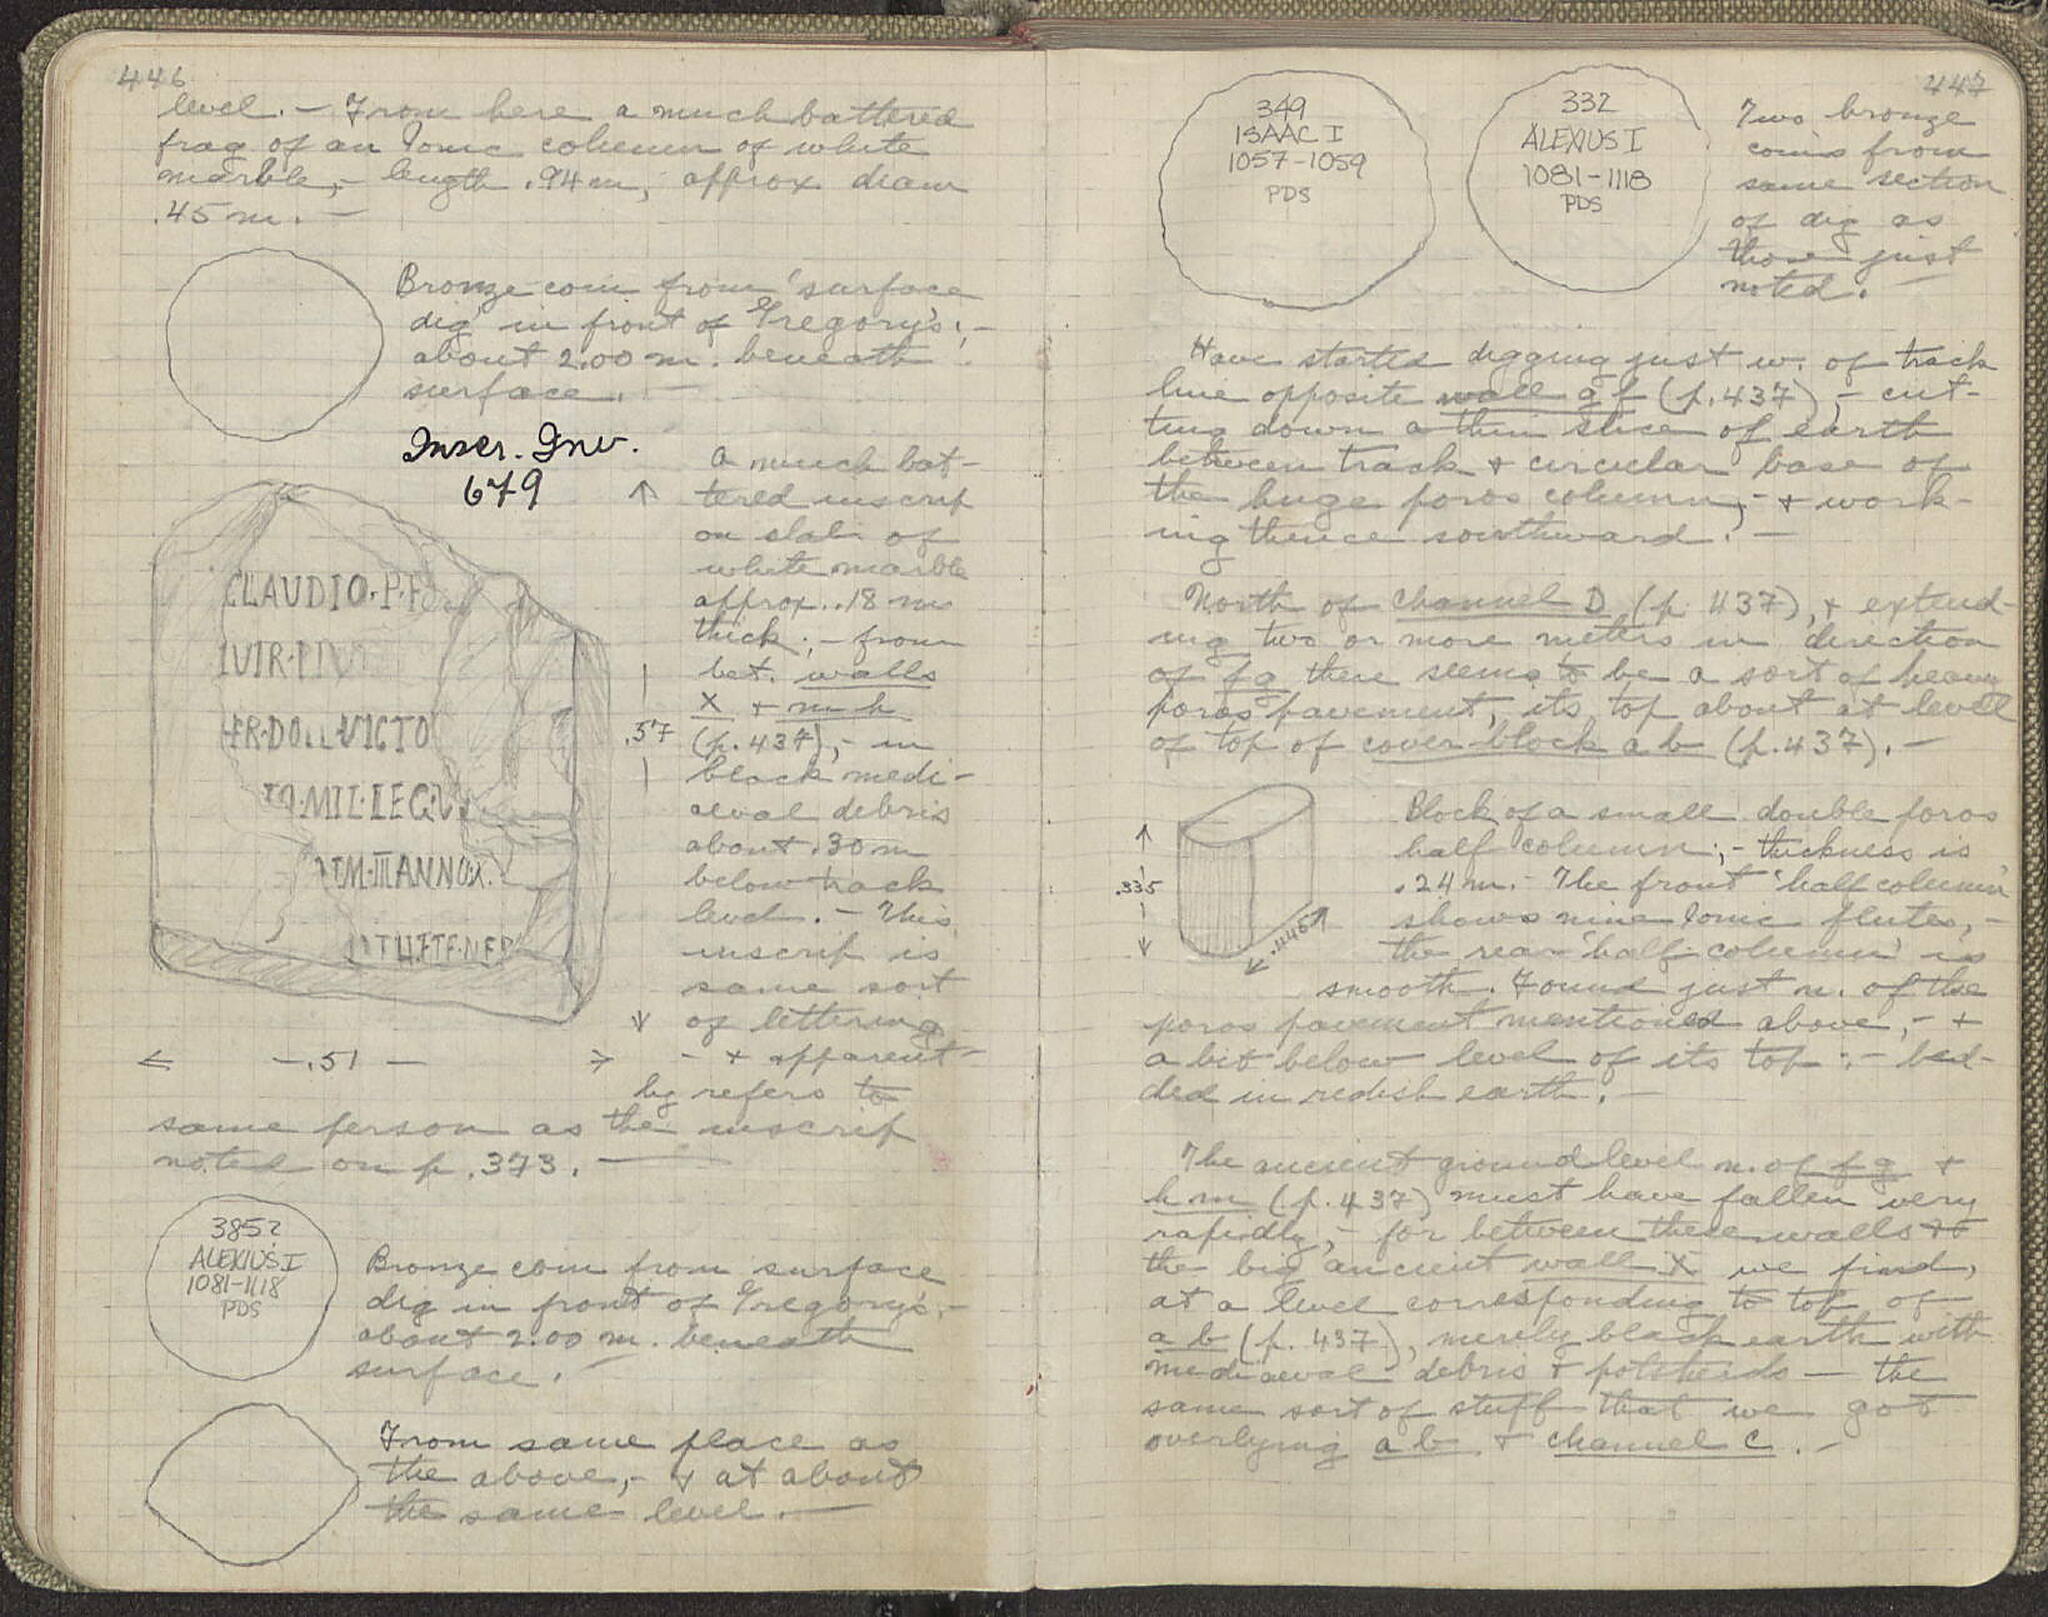 446
level. – From here a much battered
frag of an Ionic column of white
marble, – length .94 m, approx. diam
.45 m. –
Bronze coin from 'surface
dig' in front of Gregory's; –
about 2.00 m. beneath
surface. –
Inscr. Inv.
679
A much bat-
tered inscrip
on slab of
white marble
approx. .18 m
thick; – from
bet. walls
X + m h
(p. 437), – in
black medi-
aeval debris
about .30 m
below track
level. – This
inscrip is
same sort
of lettering
– + apparent-
ly refers to
same person as the inscrip
noted on p. 373. –
CLAUDIO·P·F
IVIR·
VICTO
MIL·LEG·
ANNO
.57
– .51 –
385?
ALEXIUS I
1081–1118
PDS
Bronze coin from surface
dig in front of Gregory's, –
about 2.00 m. beneath
surface. –
From same place as
the above, – + at about
the same level. –
447
349
ISAAC I
1057–1059
PDS
332
ALEXIUS I
1081–1118
PDS
Two bronze
coins from
same section
of dig as
those just
noted. –
Have started digging just w. of track
line opposite wall g f (p. 437), – cut-
ting down a thin slice of earth
between track + circular base of
the huge poros column, – + work-
ing thence southward. –
North of channel D (p. 437), + extend-
ing two or more meters in direction
of f g there seems to be a sort of heavy
poros pavement, its top about at level
of top of cover block a b (p. 437). –
Block of a small double poros
half column; – thickness is
.24 m. – The front 'half column'
shows nine Ionic flutes, –
the rear 'half column' is
smooth. Found just n. of the
poros pavement mentioned above, – +
a bit below level of its top; – bed-
ded in redish earth. –
.335
.445
The ancient ground level n. of f g +
h m (p. 437) must have fallen very
rapidly, – for between these walls +
the big ancient wall X we find,
at a level corresponding to top of
a b (p. 437), merely black earth with
mediaeval debris + potsherds – the
same sort of stuff that we got
overlying a b + channel C. –